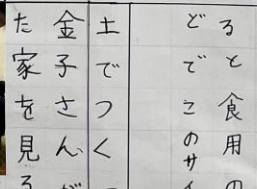 ると食用の
どでこのサイ
土でつく
金子さんが
た家を見る